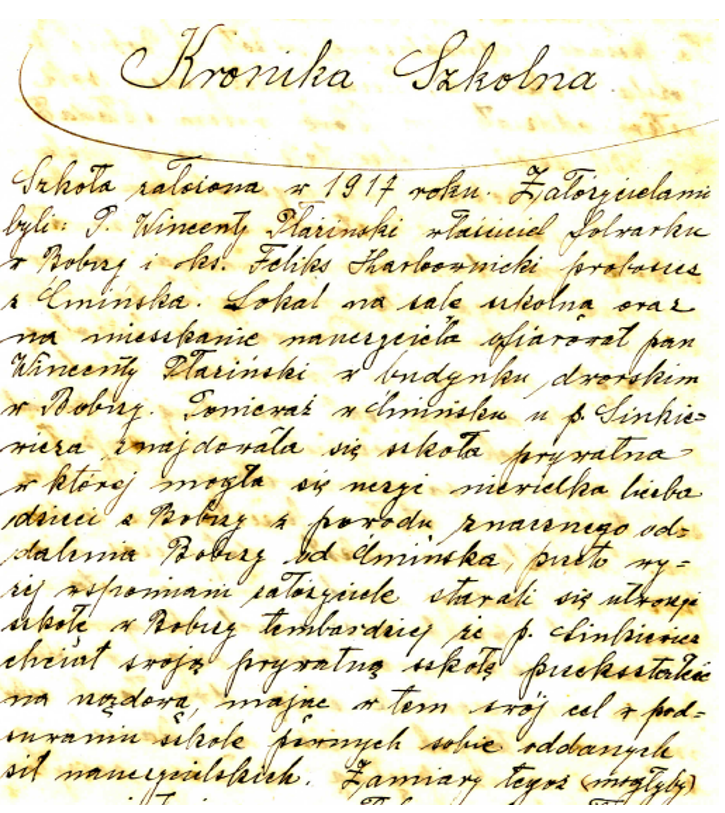 Kronika Szkolna
Szkoła założona w 1917 roku. Założycielami
byli: P. Wincenty Płaziński właściciel folwarku
w Bobrzy i ks. Feliks proboszcz
z Ćmińska. Lokal na salę szkolną oraz
na mieszkanie nauczyciela ofiarował pan
Wincenty Płaziński w budynku dworskim
w Bobrzy. Ponieważ w Ćmińsku u p. Sinkie=
wicza znajdowała się szkoła prywatna
w której mogła się uczyć niewielka liczba
dzieci z Bobrzy z powodu znacznego od=
dalenia Bobrzy od Ćmińska, przeto wy=
żej wspomniani założyciele starali się utworzyć
szkołę w Bobrzy tembardziej że p. Sinkiewicz
chciał swoją prywatną szkołę przekształcić
na rządową, mając w tem swój cel w pod=
suwaniu szkole pewnych sobie oddanych
sił nauczycielskich. Zamiary tegoż (mogłyby)